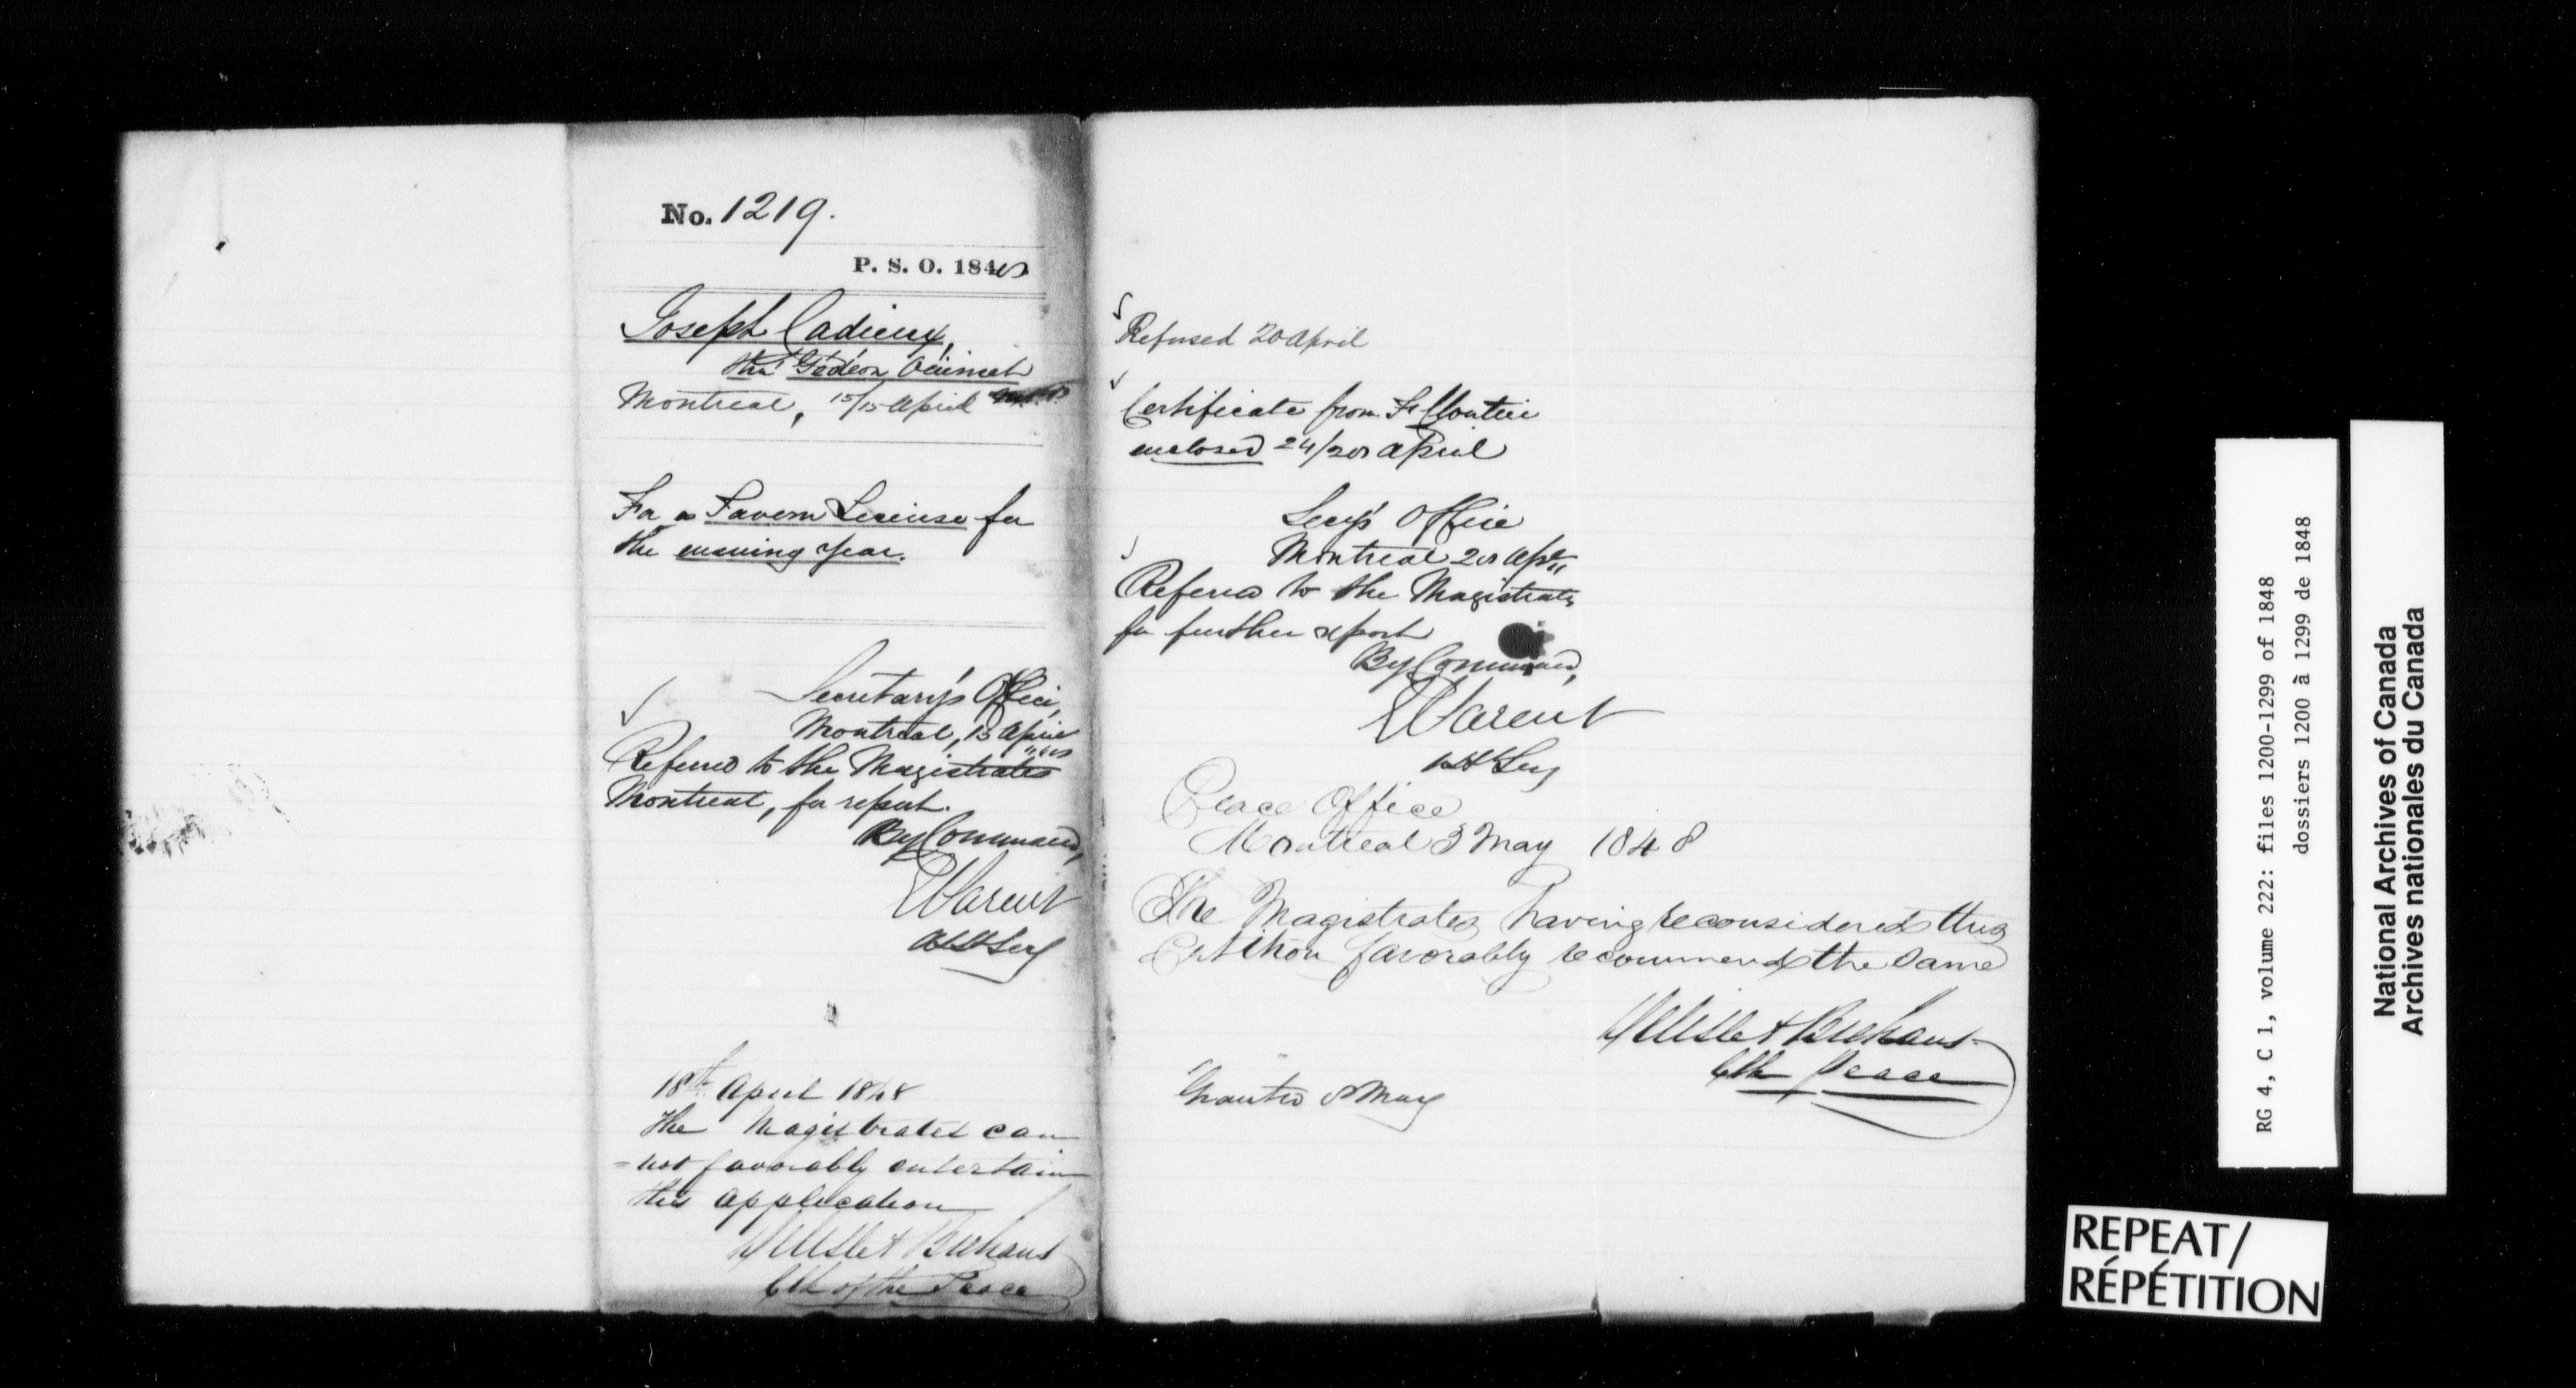 No. 1219.
P. S. O. 1848
Joseph Cadieux,
thro' Gédéon Ouimet
Montreal, 15/15 April
For a Tavern License for
the ensuing year.
Secretary's Office,
Montreal, 15 April
Referred to the Magistrates
Montreal, for report.
By Command,
E Parent
Asst Secy
18th April 1848
The Magistrates can
=not favorably entertain
this application
Delisle & Brehaut
Clk of the Peace
Refused 20 April
Certificate from
enclosed 24/28 April
Secy's Office
Montreal 28 Apl
Referred to the Magistrates
for further report
By Command,
E Parent
Asst Secy
Peace Office
Montreal 3 May 1848
The Magistrates having reconsidered this
Petition favorably recommend the same
Delisle & Brehaut
Clk Peace
Granted 8 May
RG 4, C 1, volume 222: files 1200-1299 of 1848
dossiers 1200 à 1299 de 1848
National Archives of Canada
Archives nationales du Canada
REPEAT/
RÉPÉTITION